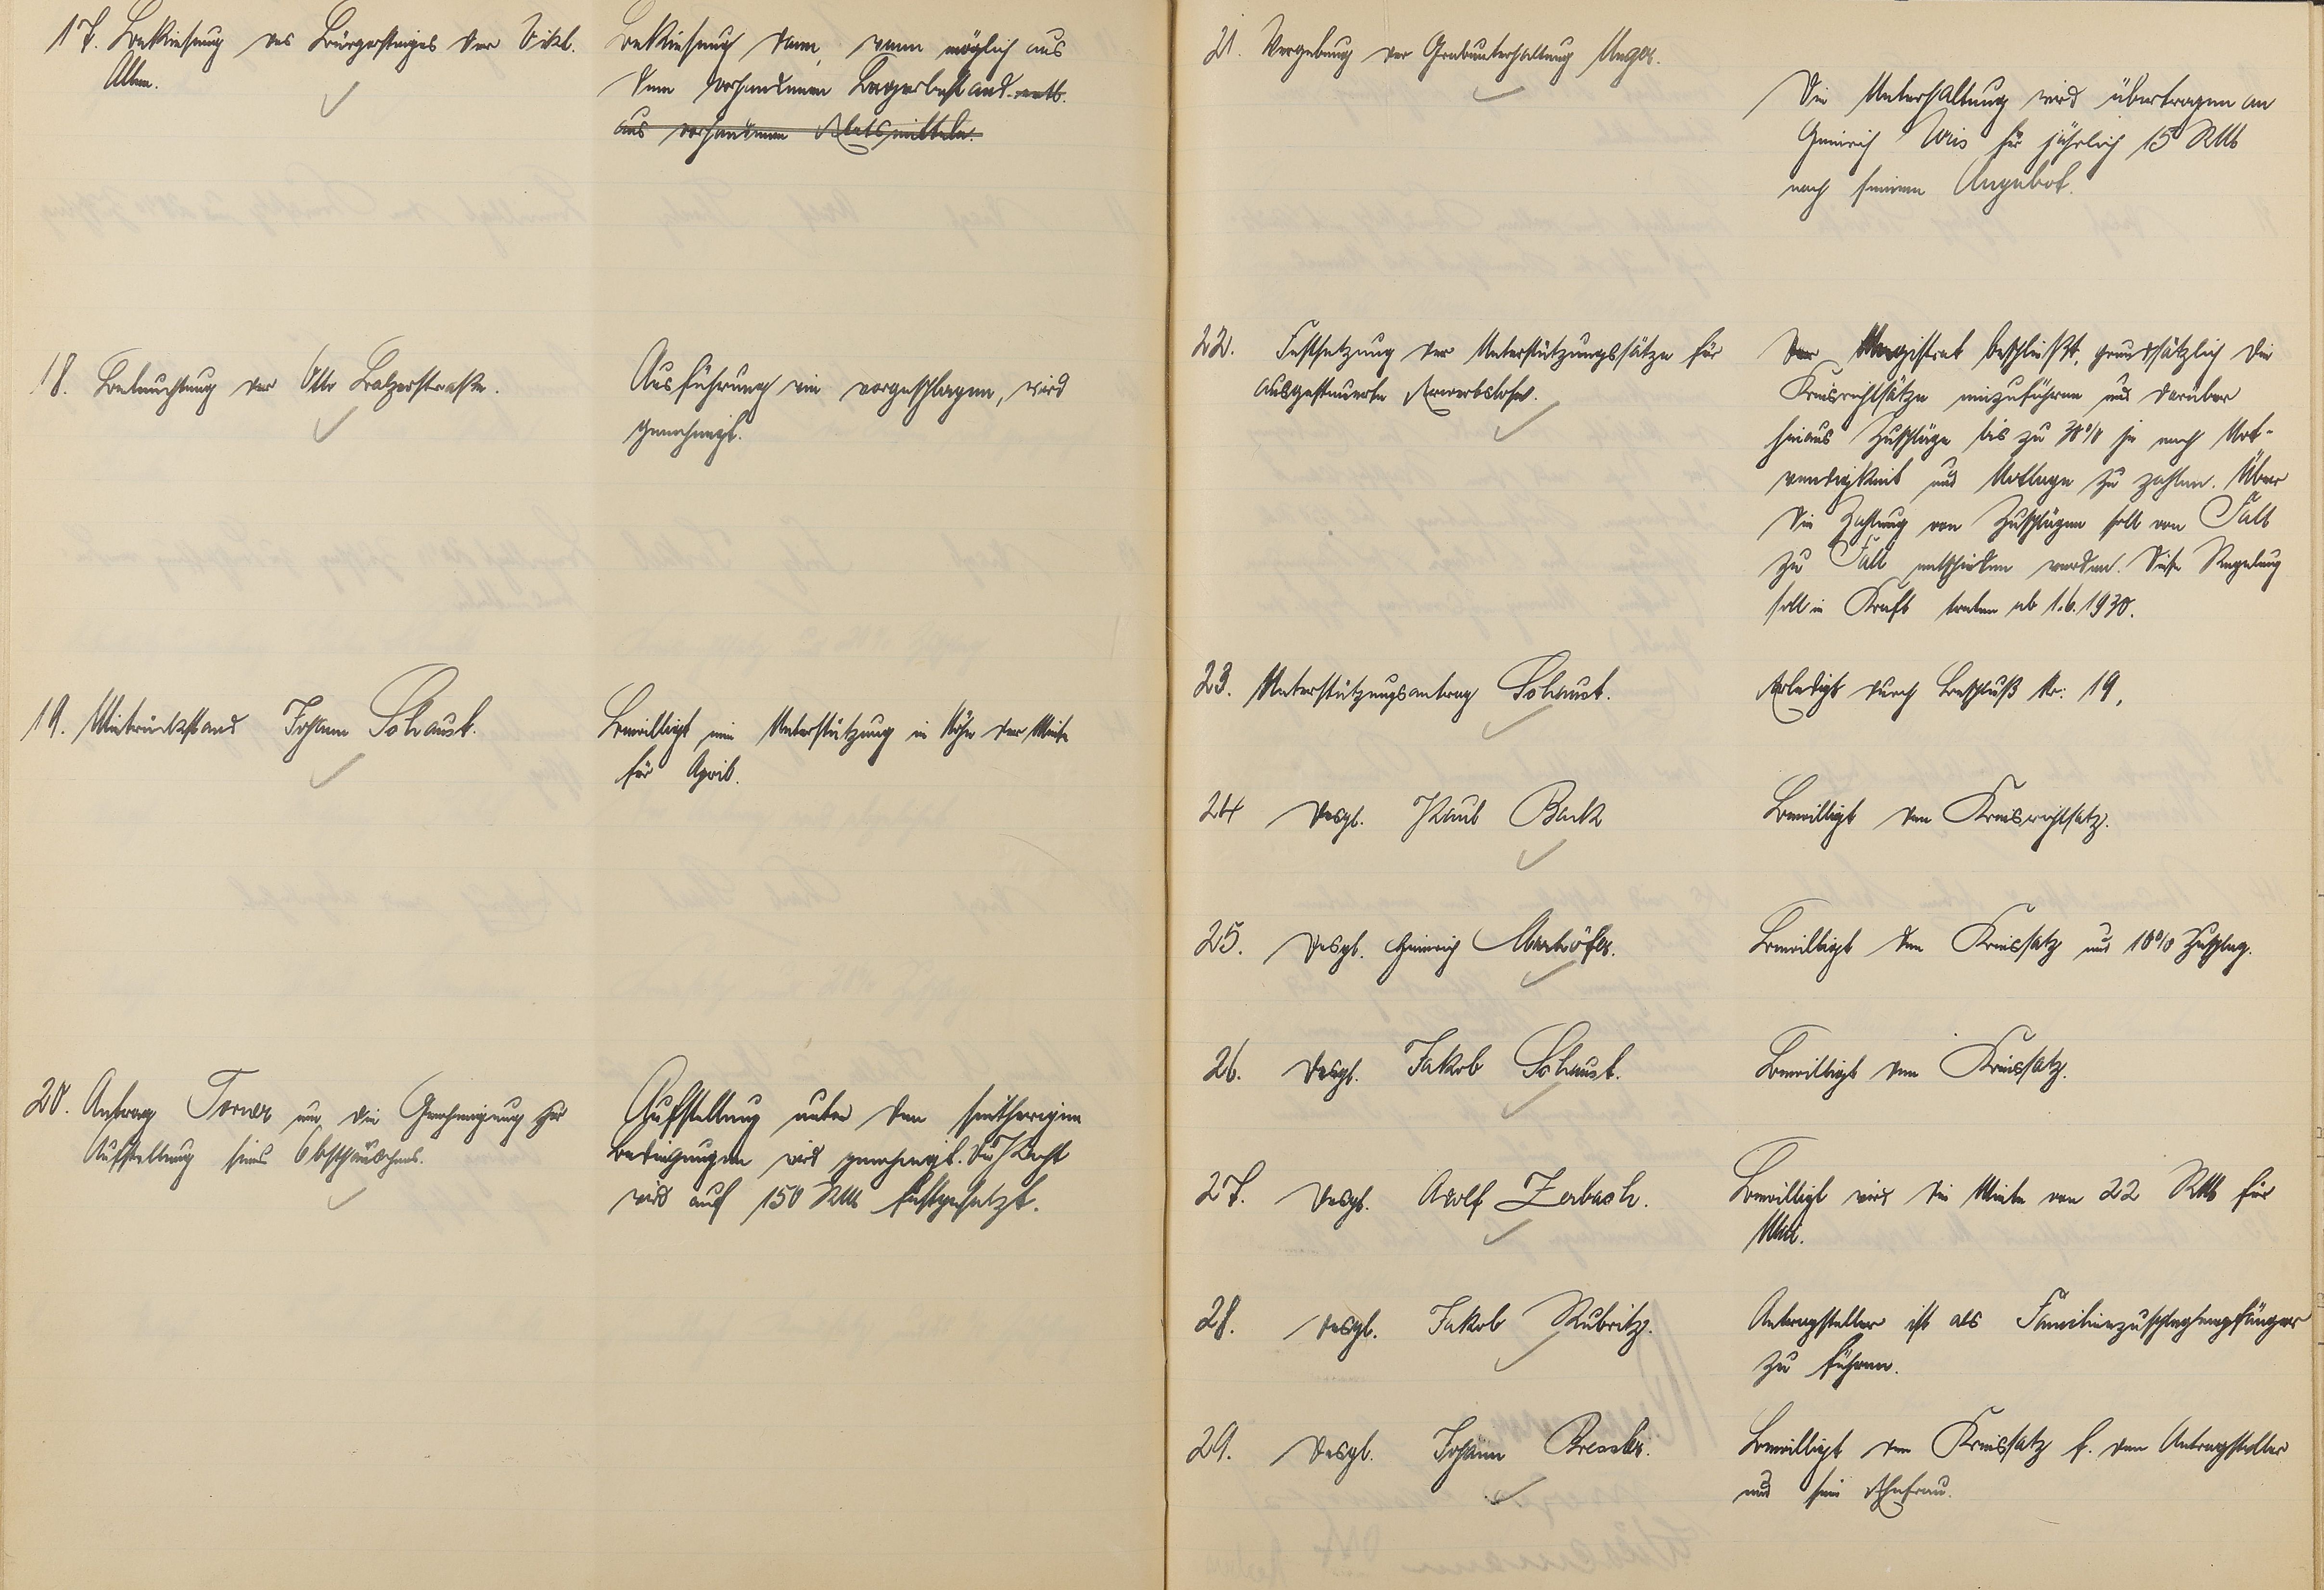 17. Bekiesung des Bürgersteiges der Vikt.
Allee.
Bekiesung dann, wenn möglich aus
dem vorhandenen Lagerbestand evtl.
aus vorhandenen Etatsmitteln.
18. Beleuchtung der Otto Balzerstraße.
Ausführung wie vorgeschlagen, wird
genehmigt.
19. Mietrückstand Johann Schaust.
Bewilligt eine Unterstützung in Höhe der Miete
für April.
20. Antrag Torwer um die Genehmigung zur
Aufstellung seines Obsthäuschens.
Aufstellung unter den seitherigen
Bedingungen wird genehmigt. Die Pacht
wird auf 150 RM festgesetzt.
21. Vergebung der Grabunterhaltung Unger.
Die Unterhaltung wird übertragen an
Heinrich Weis für jährlich 15 RM
nach seinem Angebot.
22. Festsetzung der Unterstützungssätze für
ausgesteuerte Erwerbslose.
Der Magistrat beschließt, grundsätzlich die
Kreisrichtsätze einzuführen und darüber
hinaus Zuschläge bis zu 30% je nach Not-
wendigkeit und Notlage zu zahlen. Über
die Zahlung von Zuschlägen soll von Fall
zu Fall entschieden werden. Diese Regelung
soll in Kraft treten ab 1.6.1930.
23. Unterstützungsantrag Schaust.
Erledigt durch Beschluß Nr: 19.
24 Desgl. Paul Back
Bewilligt den Kreisrichtsatz.
25. Desgl. Heinrich
Bewilligt den Kreissatz und 10% Zuschlag.
26. Desgl. Jakob Schaust.
Bewilligt den Kreissatz.
27. Desgl. Adolf Zerbach.
Bewilligt wird die Miete von 22 RM für
Mai.
28. Desgl. Jakob Rubritz.
Antragsteller ist als Familienzuschlagsempfänger
zu führen.
29. Desgl. Johann Bressler.
Bewilligt den Kreissatz f. den Antragsteller
und seine Ehefrau.